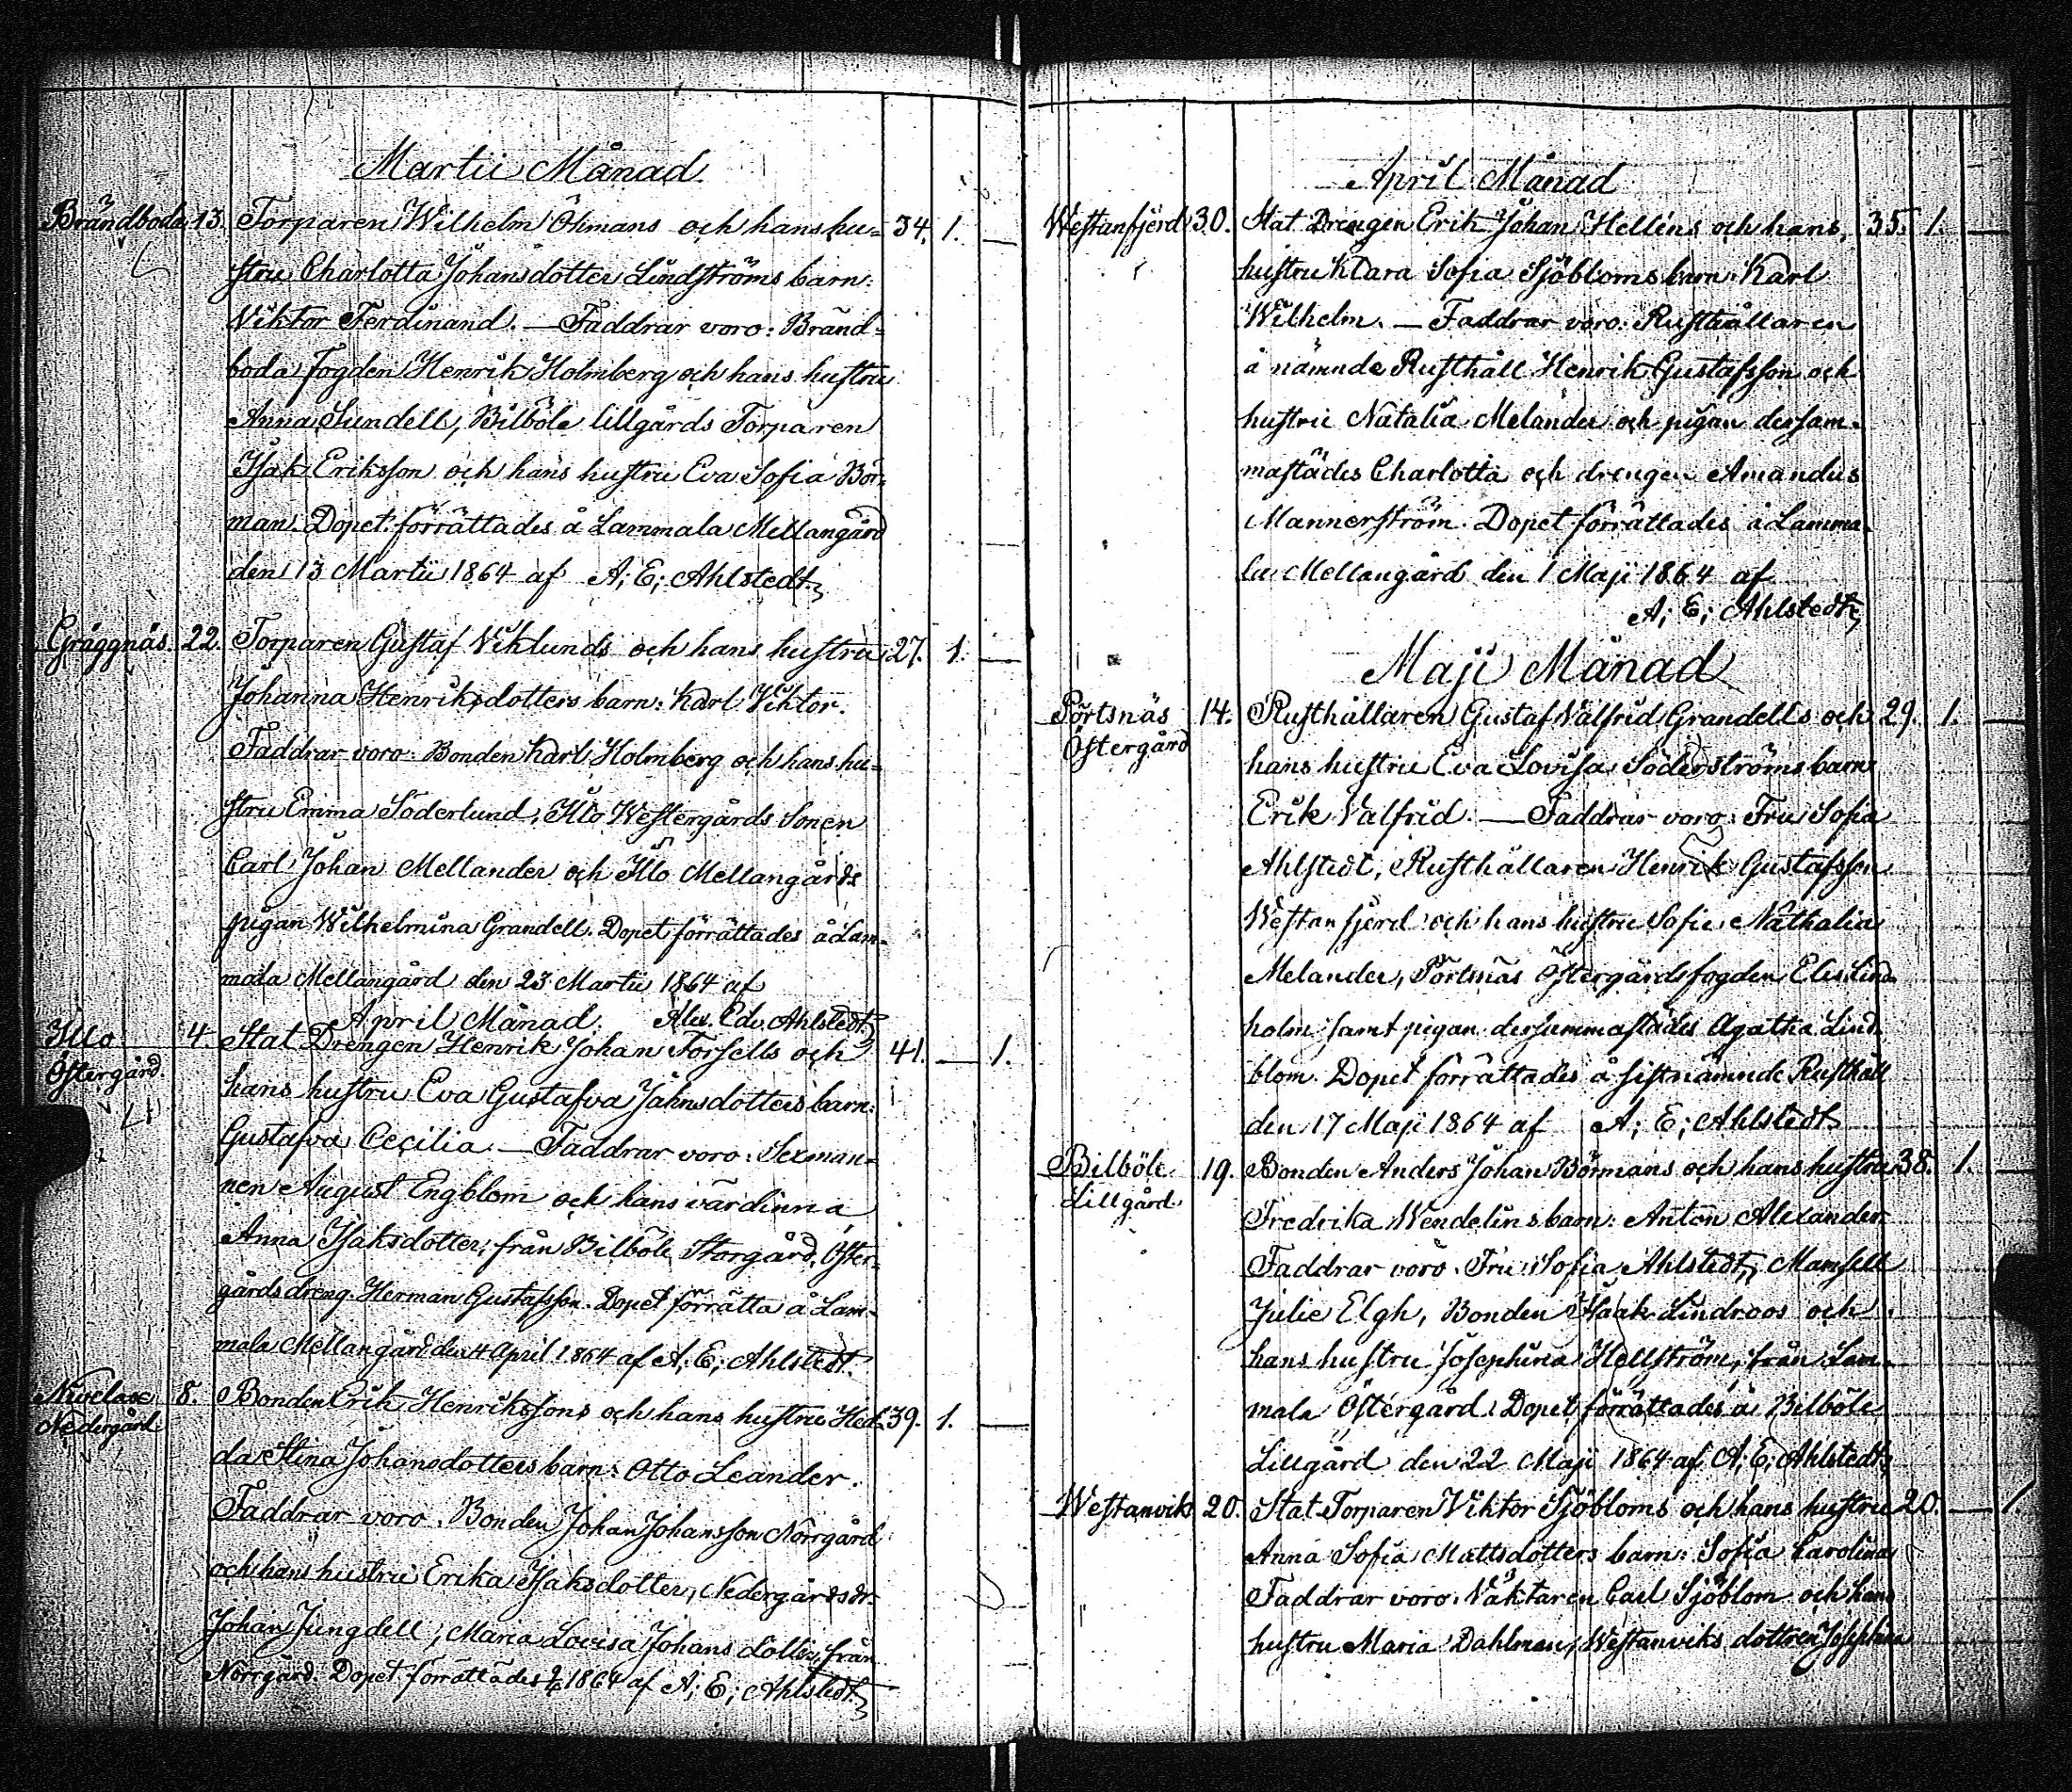 Martii Månad.
Brändboda 13. Torparen Wilhelm Öhmans och hans hu= 34. 1. —
stru Charlotta Johansdotter Lindströms barn:
Viktor Ferdinand. — Faddrar voro: Bränd=
boda fogden Henrik Holmberg och hans hustru
Anna Sundell, Bilböle lillgårds Torparen
Isak Eriksson och hans hustru Eva Sofia Bör=
man. Dopet förrättades å Lammala Mellangård
den 13 Martii 1864 af A; E; Ahlstedt.
Gräggnäs. 22. Torparen Gustaf Viklunds och hans hustru 27. 1. —
Johanna Henriksdotters barn: Karl Viktor.
Faddrar voro: Bonden Karl Holmberg och hans hu=
stru Emma Söderlund, Illo Westergårds Sonen
Carl Johan Mellander och Illo Mellangårds
pigan Wilhelmina Grandell. Dopet förrättades å Lam=
mala Mellangård den 23 Martii 1864 af
April Månad. Alex. Edv. Ahlstedt
Illo 4. Stat Drengen Henrik Johan Forsells och 41. — 1.
Östergård.
hans hustru Eva Gustafva Jahnsdotters barn:
Gustafva Cecilia. — Faddrar voro: Sexman=
nen August Engblom och hans värdinna
Anna Isaksdotter, från Bilböle Storgård, Öster=
gårds dreng Herman Gustafsson. Dopet förrätta å Lam=
mala Mellangård den 4 April 1864 af A; E; Ahlstedt.
Nivelax 8. Bonden Erik Henrikssons och hans hustru Hed= 39. 1. —
Nedergård
da Stina Johansdotters barn: Otto Leander.
Faddrar voro: Bonden Johan Johansson Norrgård
och hans hustru Erika Isaksdotter, Nedergårdsdr.
Johan Jungdell, Maria Lovisa Johans dotter, från
Norrgård. Dopet förrättades 1864 af A; E; Ahlstedt
April Månad
Westanfjerd 30. Stat Drengen Erik Johan Helléns och hans 35. 1. —
hustru Klara Sofia Sjöbloms barn: Karl
Wilhelm. — Faddrar voro: Rusthållaren
å nämnde Rusthåll Henrik Gustafsson och
hustru Natalia Melander och pigan dersam=
mastädes Charlotta och drengen Amandus
Mannerström. Dopet förrättades å Lamma=
la Mellangård den 1 Maji 1864 af
A; E; Ahlstedt,
Maji Månad
Pörtsnäs 14. Rusthållaren Gustaf Valfrid Grandells och 29. 1. —
Östergård
hans hustru Eva Lovisa Söderströms barn
Erik Valfrid. — Faddrar voro: Fru Sofia
Ahlstedt, Rusthållaren Henrik Gustafsson
Westanfjerd och hans hustru Sofie Nathalia
Melander, Pörtsnäs Östergårds fogden Elis Lind=
holm samt pigan dersammastädes Agatha Lind=
blom. Dopet förrättades å sistnämnde Rusthåll
den 17 Maji 1864 af A; E; Ahlstedt
Bilböle 19. Bonden Anders Johan Börmans och hans hustru 38. 1. —
Lillgård
Fredrika Wendelins barn: Anton Alexander.
Faddrar voro: Fru Sofia Ahlstedt, Mamsell
Julie Elgh, Bonden Isaak Lindroos och
hans hustru Josephina Hellström, från Lam=
mala Östergård. Dopet förrättades å Bilböle
Lillgård den 22 Maji 1864 af A; E; Ahlstedt,
Westanvik 20. Stat Torparen Viktor Sjöbloms och hans hustru 20. — 1.
Anna Sofia Mattsdotters barn: Sofia Carolina
Faddrar voro: Väktaren Carl Sjöblom och hans
hustru Maria Dahlman, Westanviks dottren Josephina